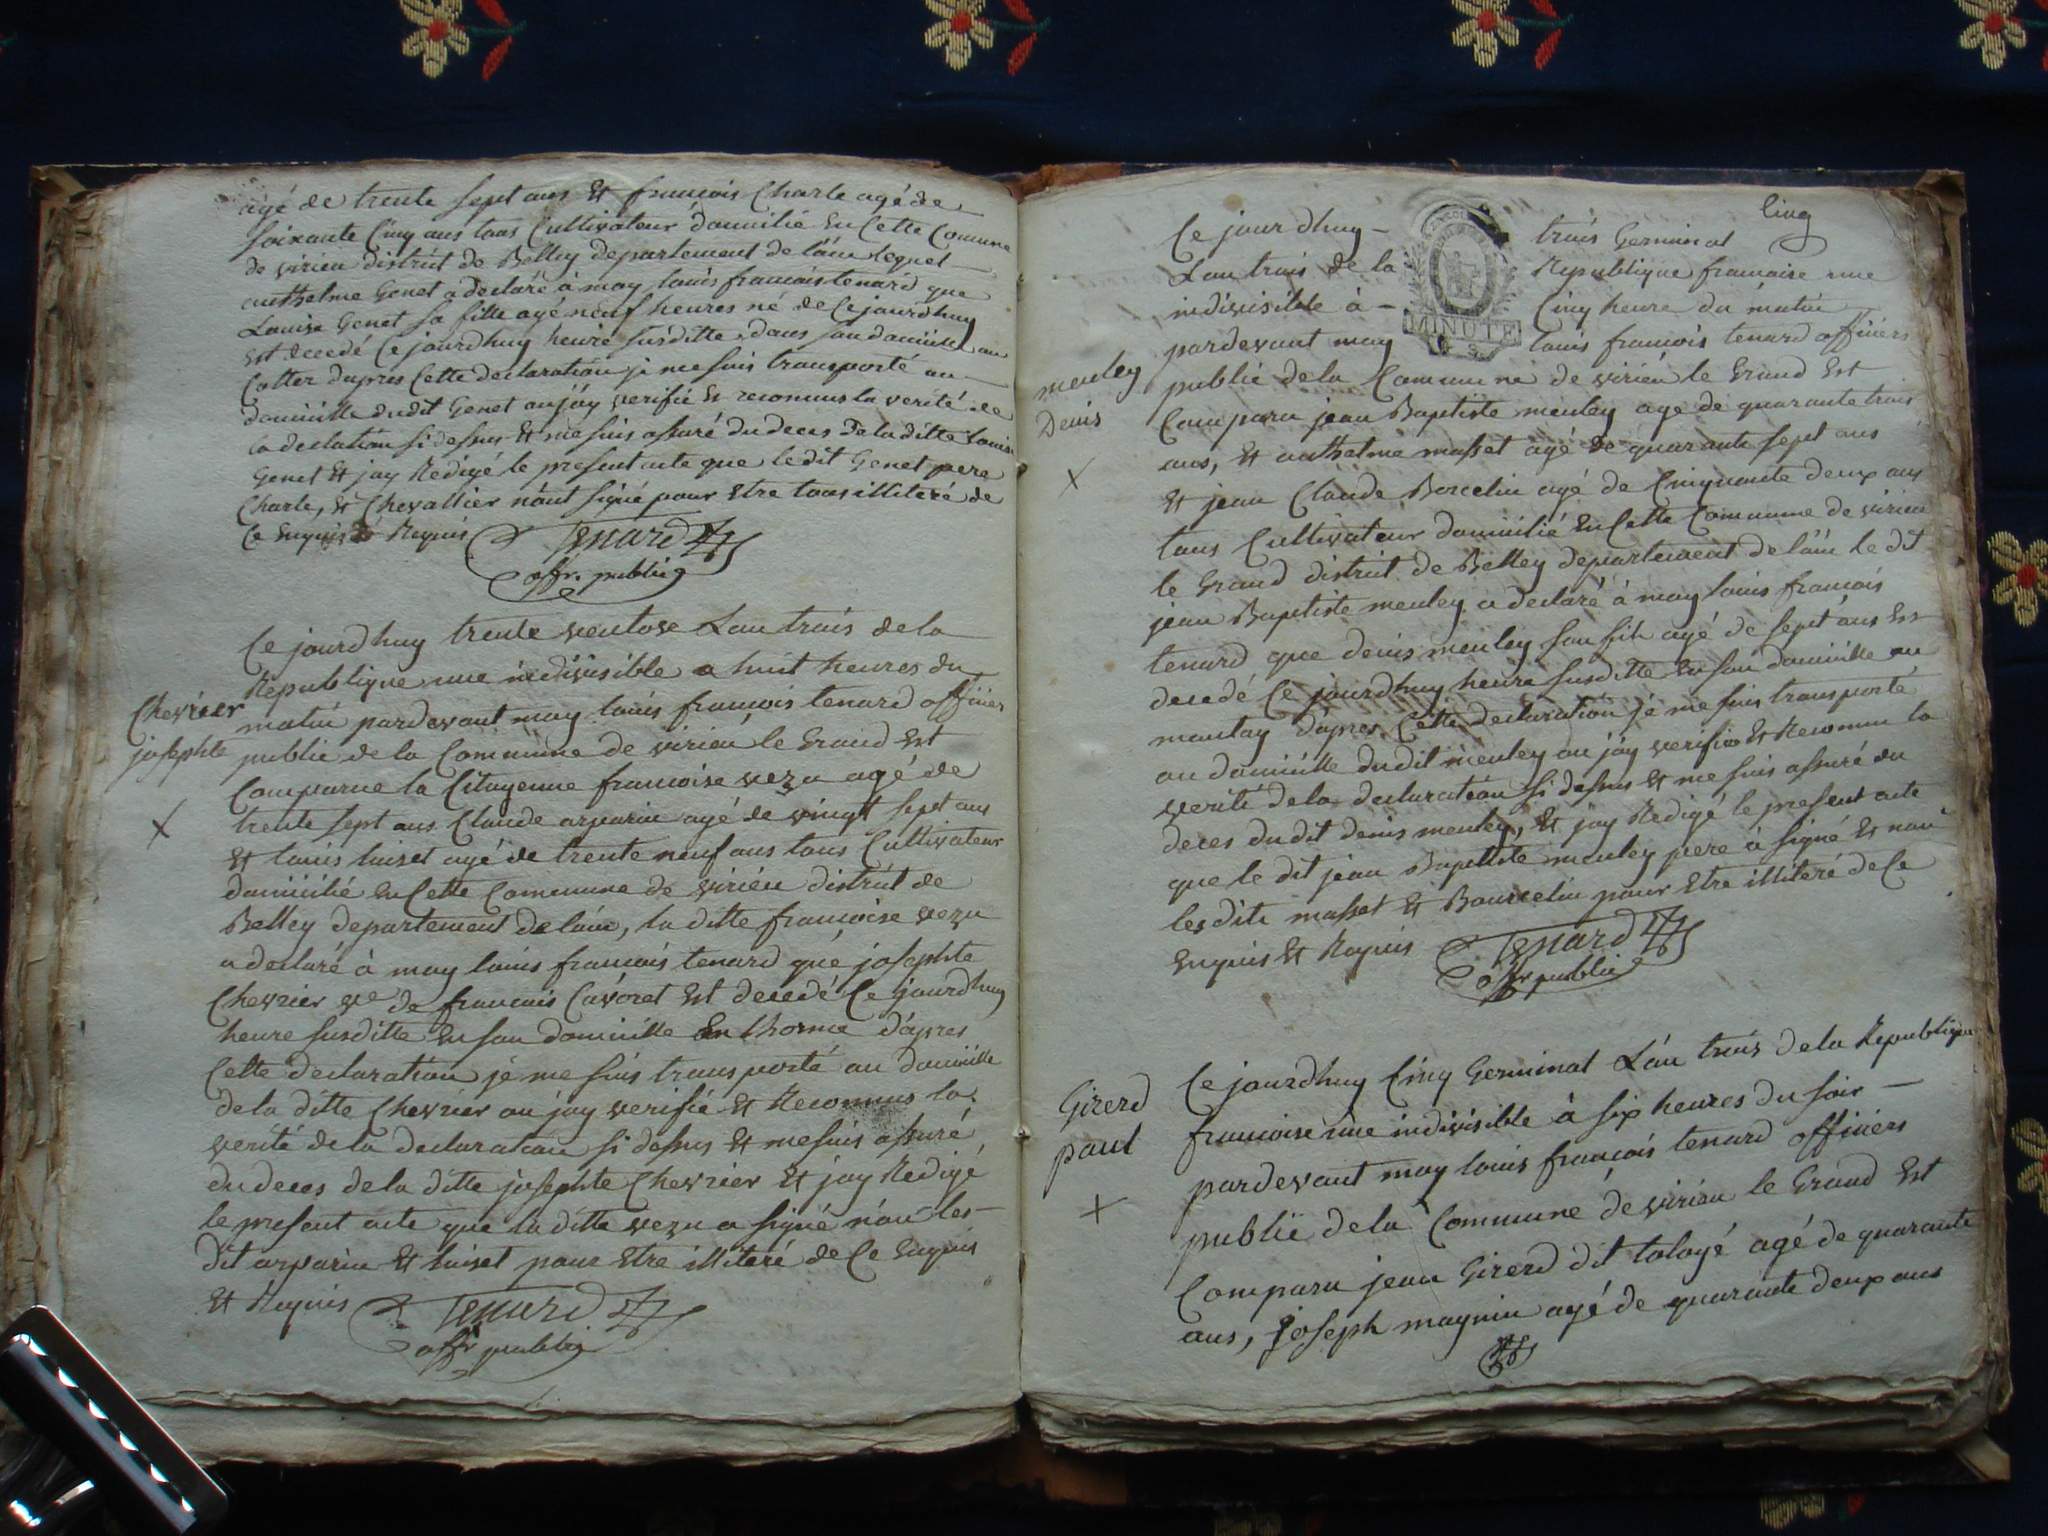 agé de trente sept ans Et francois Charle agé de
soixante Cinq ans tous Cultivateur domicilié En Cette Comune
de virieu district de Belley departement de lain lequel
anthelme Genet a declaré à moy louis francois tenard que
Louise Genet sa fille agé neuf heures né de Ce jourdhuy
Est decedé Ce jourdhuy heure susditte dans son domicille au
Cotter dapres Cette declaration je me suis transporté au
domicille dudit Genet ou jay verifié Et reconnus la verité de
la declation si dessus Et me suis assuré du deces de la ditte Louise
Genet Et jay Redigé le present acte que le dit Genet pere
Charle, Et Chevallier nont signé pour Etre tous illiteré de
Ce Enquis Et Requis Tenard
offr. public
Ce jourdhuy trente ventose Lan trois de la
Republique une indivisible a huit heures du
Chevrier
matin pardevant moy louis francois tenard officiers
josephte
public de la Commune de virieu le Grand Est
Comparue la Citoyenne francoise vezu agé de
trente sept ans Claude arparin agé de vingt sept ans
X
Et louis luiset agé de trente neuf ans tous Cultivateur
domicilié En Cette Commune de virieu district de
Belley departement de lain, la ditte francoise vezu
a declaré à moy louis francois tenard que josephte
Chevrier ve de francois Cavoret Est decedé Ce jourdhuy
heure susditte En son domicille En lhorme dapres
Cette declaration je me suis transporté au domicille
de la ditte Chevrier ou jay verifié Et Reconnus la
verité de la declaration si dessus Et me suis assuré
du deces de la ditte josephte Chevrier Et jay Redigé
le present acte que la ditte vezu a signé non les
dit arparin Et luiset pour Etre illiteré de Ce Enquis
Et Requis Tenard
offr public
Cinq
Ce jourdhuy trois Germinal
Lan trois de la Republique francaise une
indivisible à Cinq heure du matin
MINUTE
pardevant moy louis francois tenard officiers
meuley
publié de la Commune de virieu le Grand Est
Denis
Comparu jean Baptiste meuley age de quarante trois
ans, Et anthelme masset agé de quarante sept ans
X
Et jean Claude Borcelin agé de Cinquante deux ans
tous Cultivateur domicilié En Cette Commune de virieu
le Grand district de Belley departement de lain le dit
jean Baptiste meuley a declaré à moy louis francois
tenard que denis meuley son fils agé de sept ans Est
decedé Ce jourdhuy heure susditte En son domicille au
moulay dapres Cette declaration je me suis transporté
au domicille du dit meuley ou jay verifié Et Reconnu la
verité de la declaration si dessus Et me suis assuré du
deces du dit denis meuley, Et jay Redigé le present acte
que le dit jean Baptiste meuley pere à signé Et non
les dits masset Et Bourcelin pour Etre illiteré de Ce
Enquis Et Requis Tenard
offr public
Ce jourdhuy Cinq Germinal Lan trois de la Republique
Girerd
francoise une indivisible à six heures du soir
paul
pardevant moy louis francois tenard officiers
X
publié de la Commune de virieu le Grand Est
Comparu jean Girerd dit toloyé agé de quarante
ans, joseph maynin agé de quarante deux ans